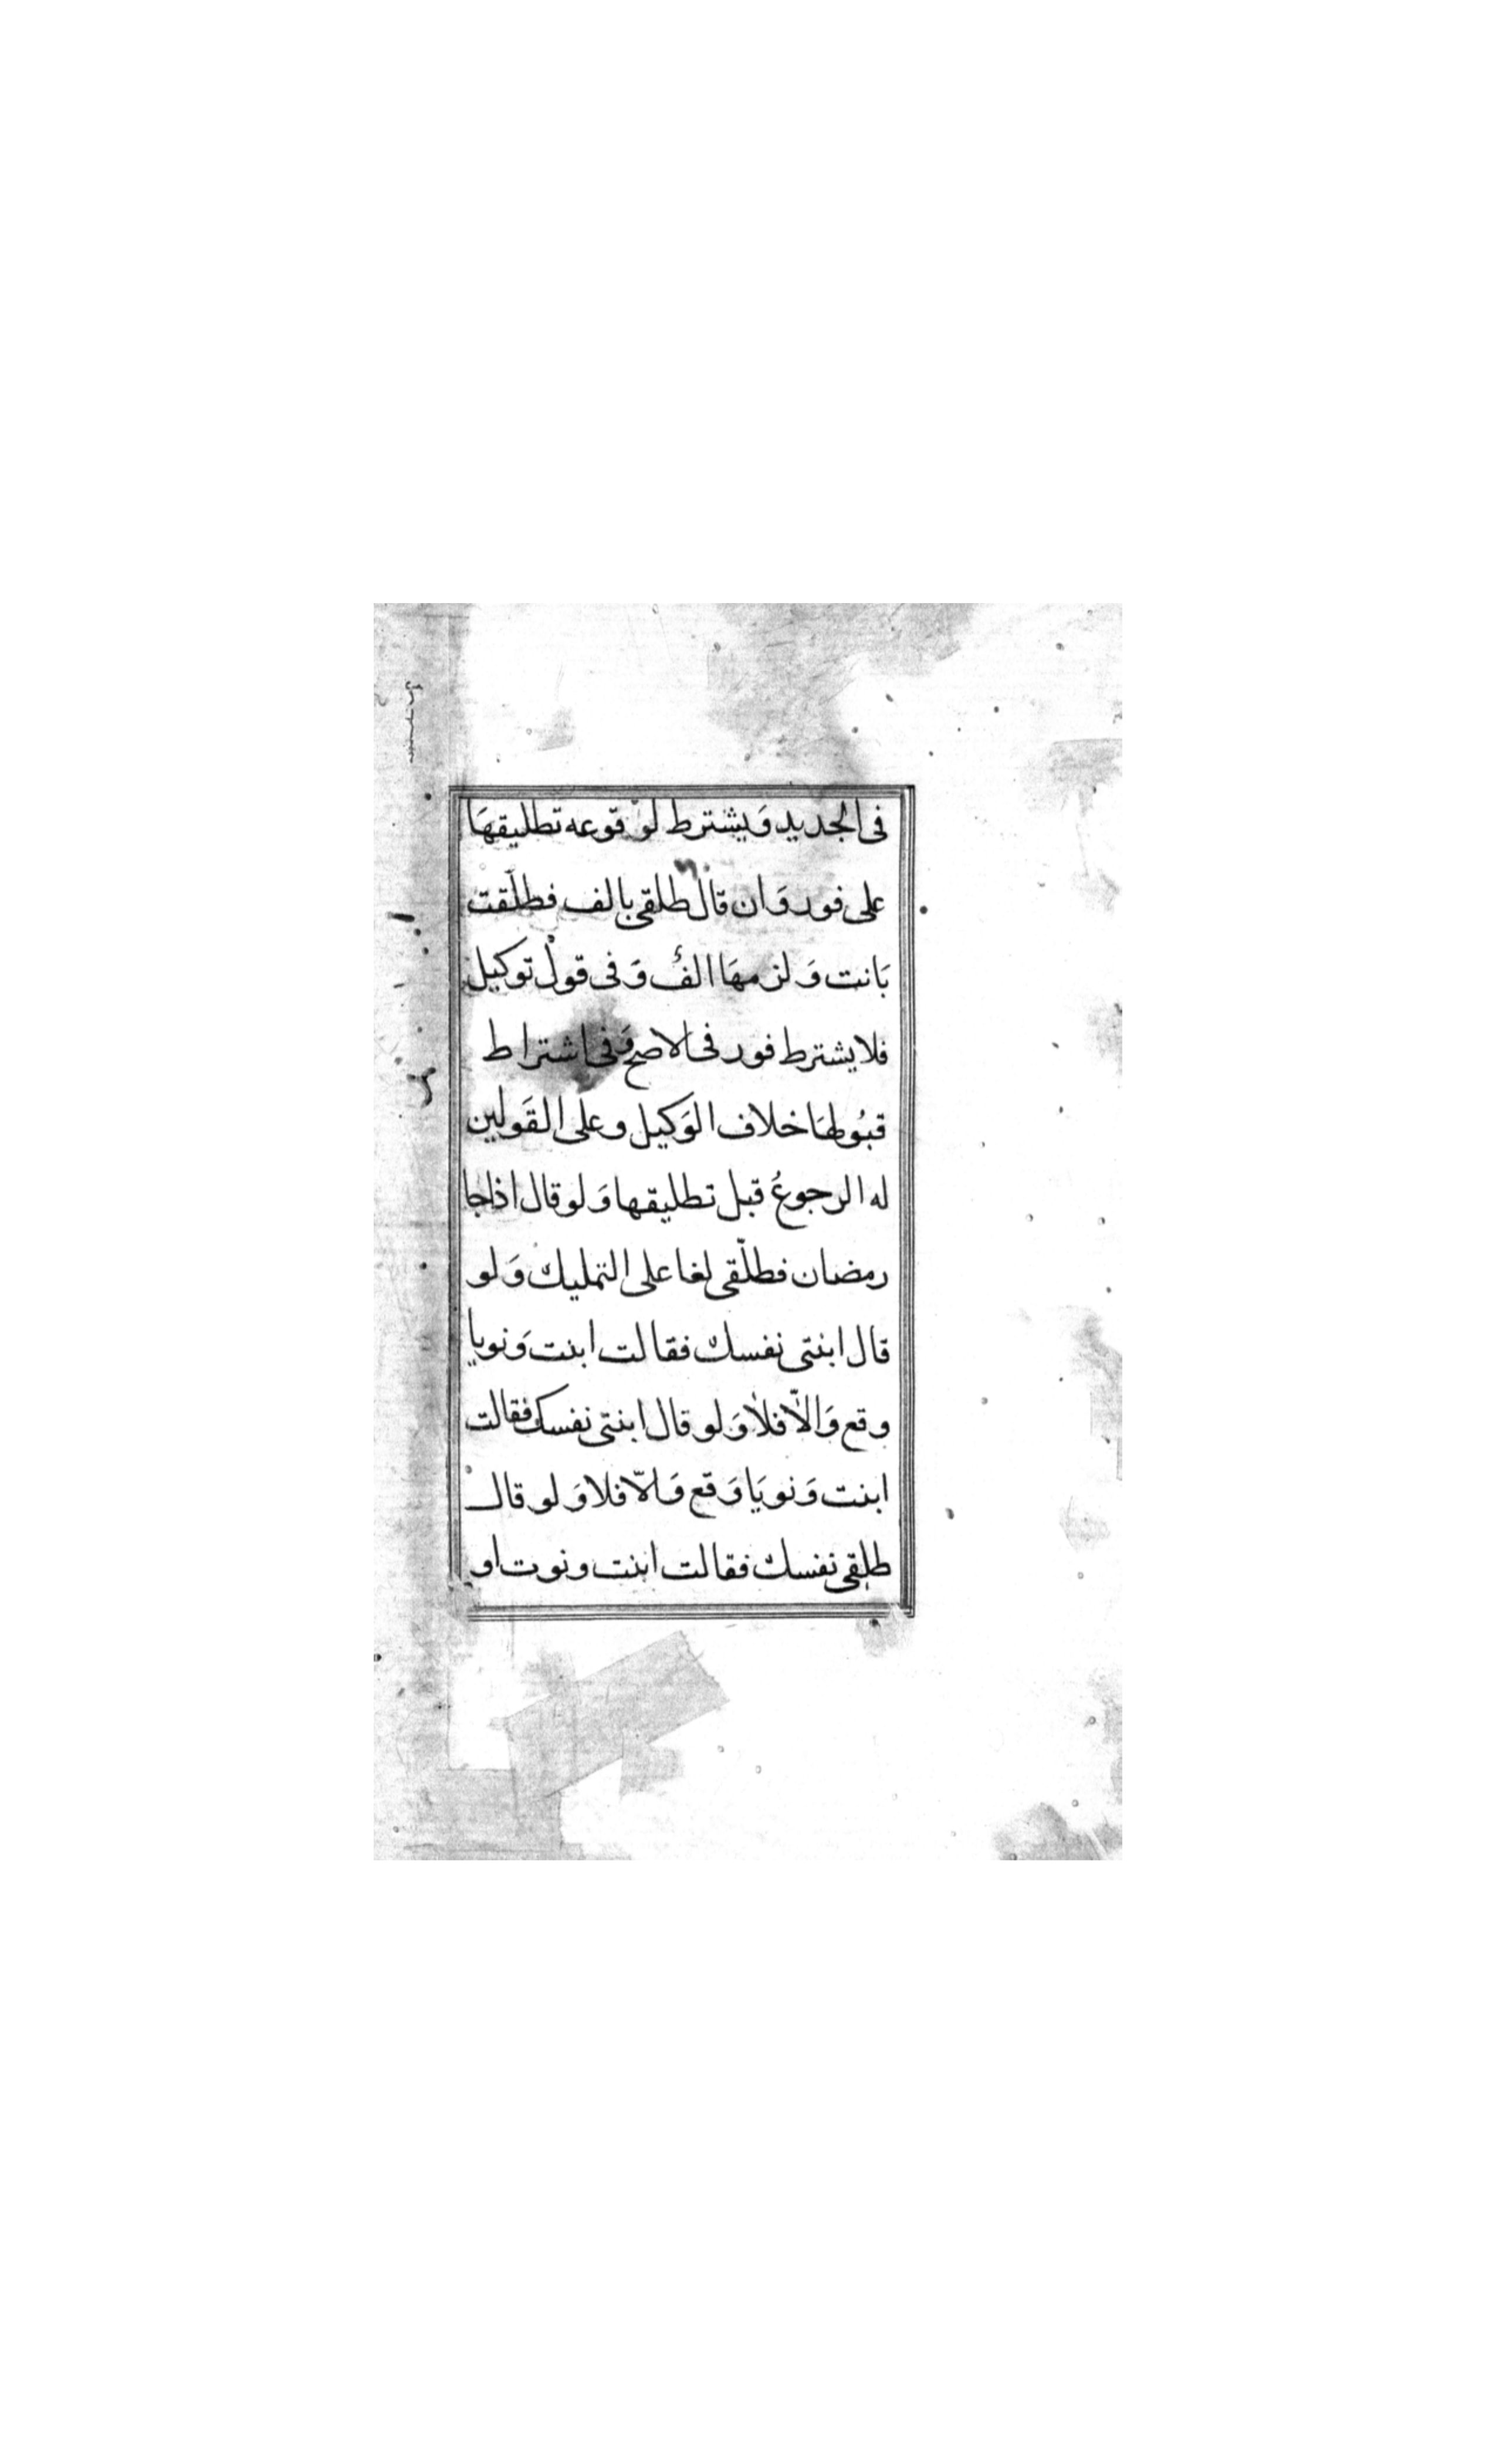 فى الجديد وَيشترط لوْ قوّعه تطليقهَا
على فور وَان قال طلقى بالف فطلّقت
بَانت وَ لزمهَا الفُ وَ فى قول توكيل
فلا يشترط فور فى الاصح وَفى اشتراط
قبُولهَا خلاف الوَكيل و على القَولين
له الرجوعُ قبل تطليقها وَ لو قال اذا جا
رمضان فطلّقى لغا على التمليك وَ لو
قال ابنتى نفسك فقالت ابنت وَ نويا
وقع وَالاّ فلا وَ لو قال ابنتى نفسك فقالت
ابنت وَ نويَا وَقع وَالاّ فلا وَ لو قال
طلقى نفسك فقالت ابنت و نوت او